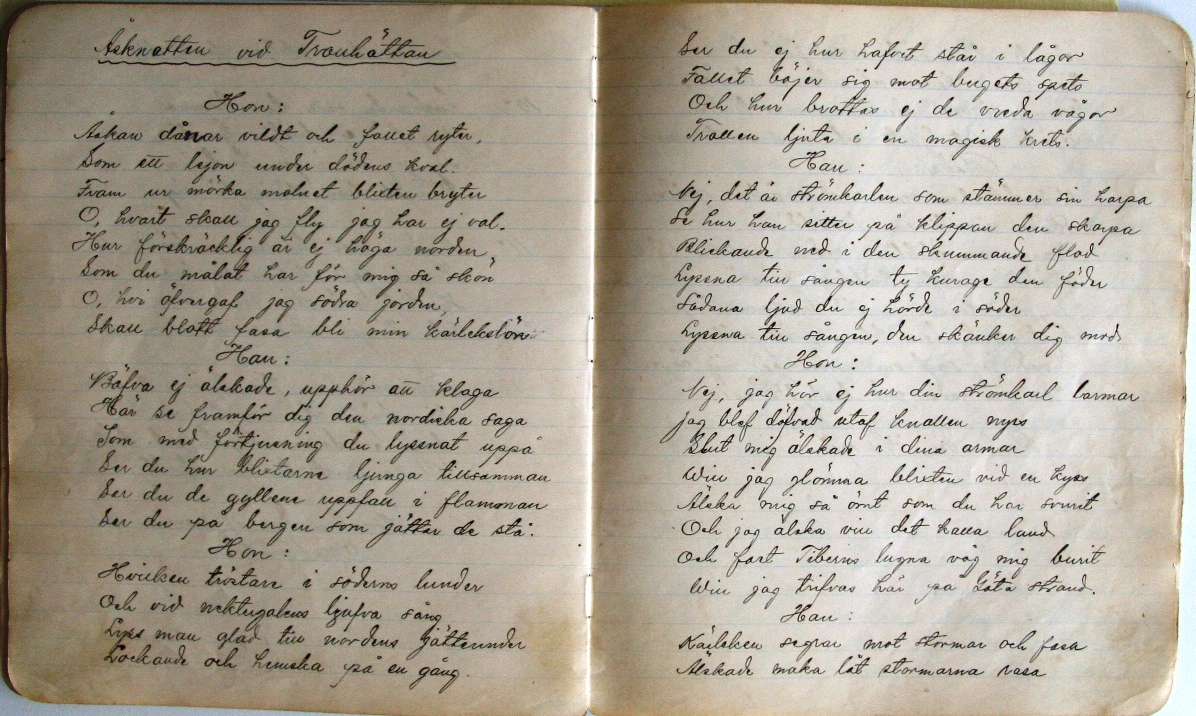 Åsknatten vid Trollhättan
Hon:
Åskan dånar vildt och fallet ryter,
Som ett lejon under dödens kval.
Fram ur mörka molnet blixten bryter
O, hvart skall jag fly jag har ej val.
Hur förskräcklig är ej höga norden
Som du målat har för mig så skön
O, hvi öfvergaf jag södra jorden,
Skall blott fasa bli min kärlekslön.
Han:
Bäfva ej älskade, upphör att klaga
Här se framför dig den nordiska saga
Som med förtjusning du lyssnat uppå
Ser du hur blixtarne ljunga tillsamman
Ser du de gyllene uppfall i flamman
Ser du på bergen som jättar de stå.
Hon:
Hvilken tröstare i söderns lunder
Och vid nektergalens ljufva sång
Lyss man glad till nordens jätteunder
Lockande och hemska på en gång.
Ser du ej hur hafvet står i lågor
Fallet böjer sig mot bergets spets
Och hur brottas ej de vreda vågor
Trollen ljuta i en magisk krets.
Han:
Nej, det är strömkarlen som stämmer sin harpa
Se hur han sitter på klippan den skarpa
Blickande ned i den skummande flod
Lyssna till sången ty kurage den föder
Sådana ljud du ej hörde i söder
Lyssna till sången, den skänker dig mod
Hon:
Nej, jag hör ej hur din strömkarl larmar
Jag blef döfvad utaf knallen nyss
Slut mig älskade i dina armar
Will jag glömma blixten vid en kyss
Älska mig så ömt som du har svurit
Och jag älska vill det kalla land
Och fast Tiberns lugna våg mig burit
Will jag trifvas här på Göta strand.
Han:
Kärleken segrar mot stormar och fasa
Älskade maka låt stormarna rasa